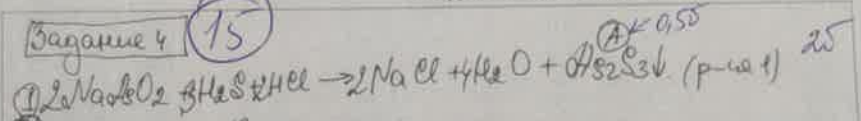 Задание 4 15
А 0,5б 2б
① 2NaAsO2 + 3H2S + 2HCl → 2NaCl + 4H2O + As2S3↓ (р-ция 1)